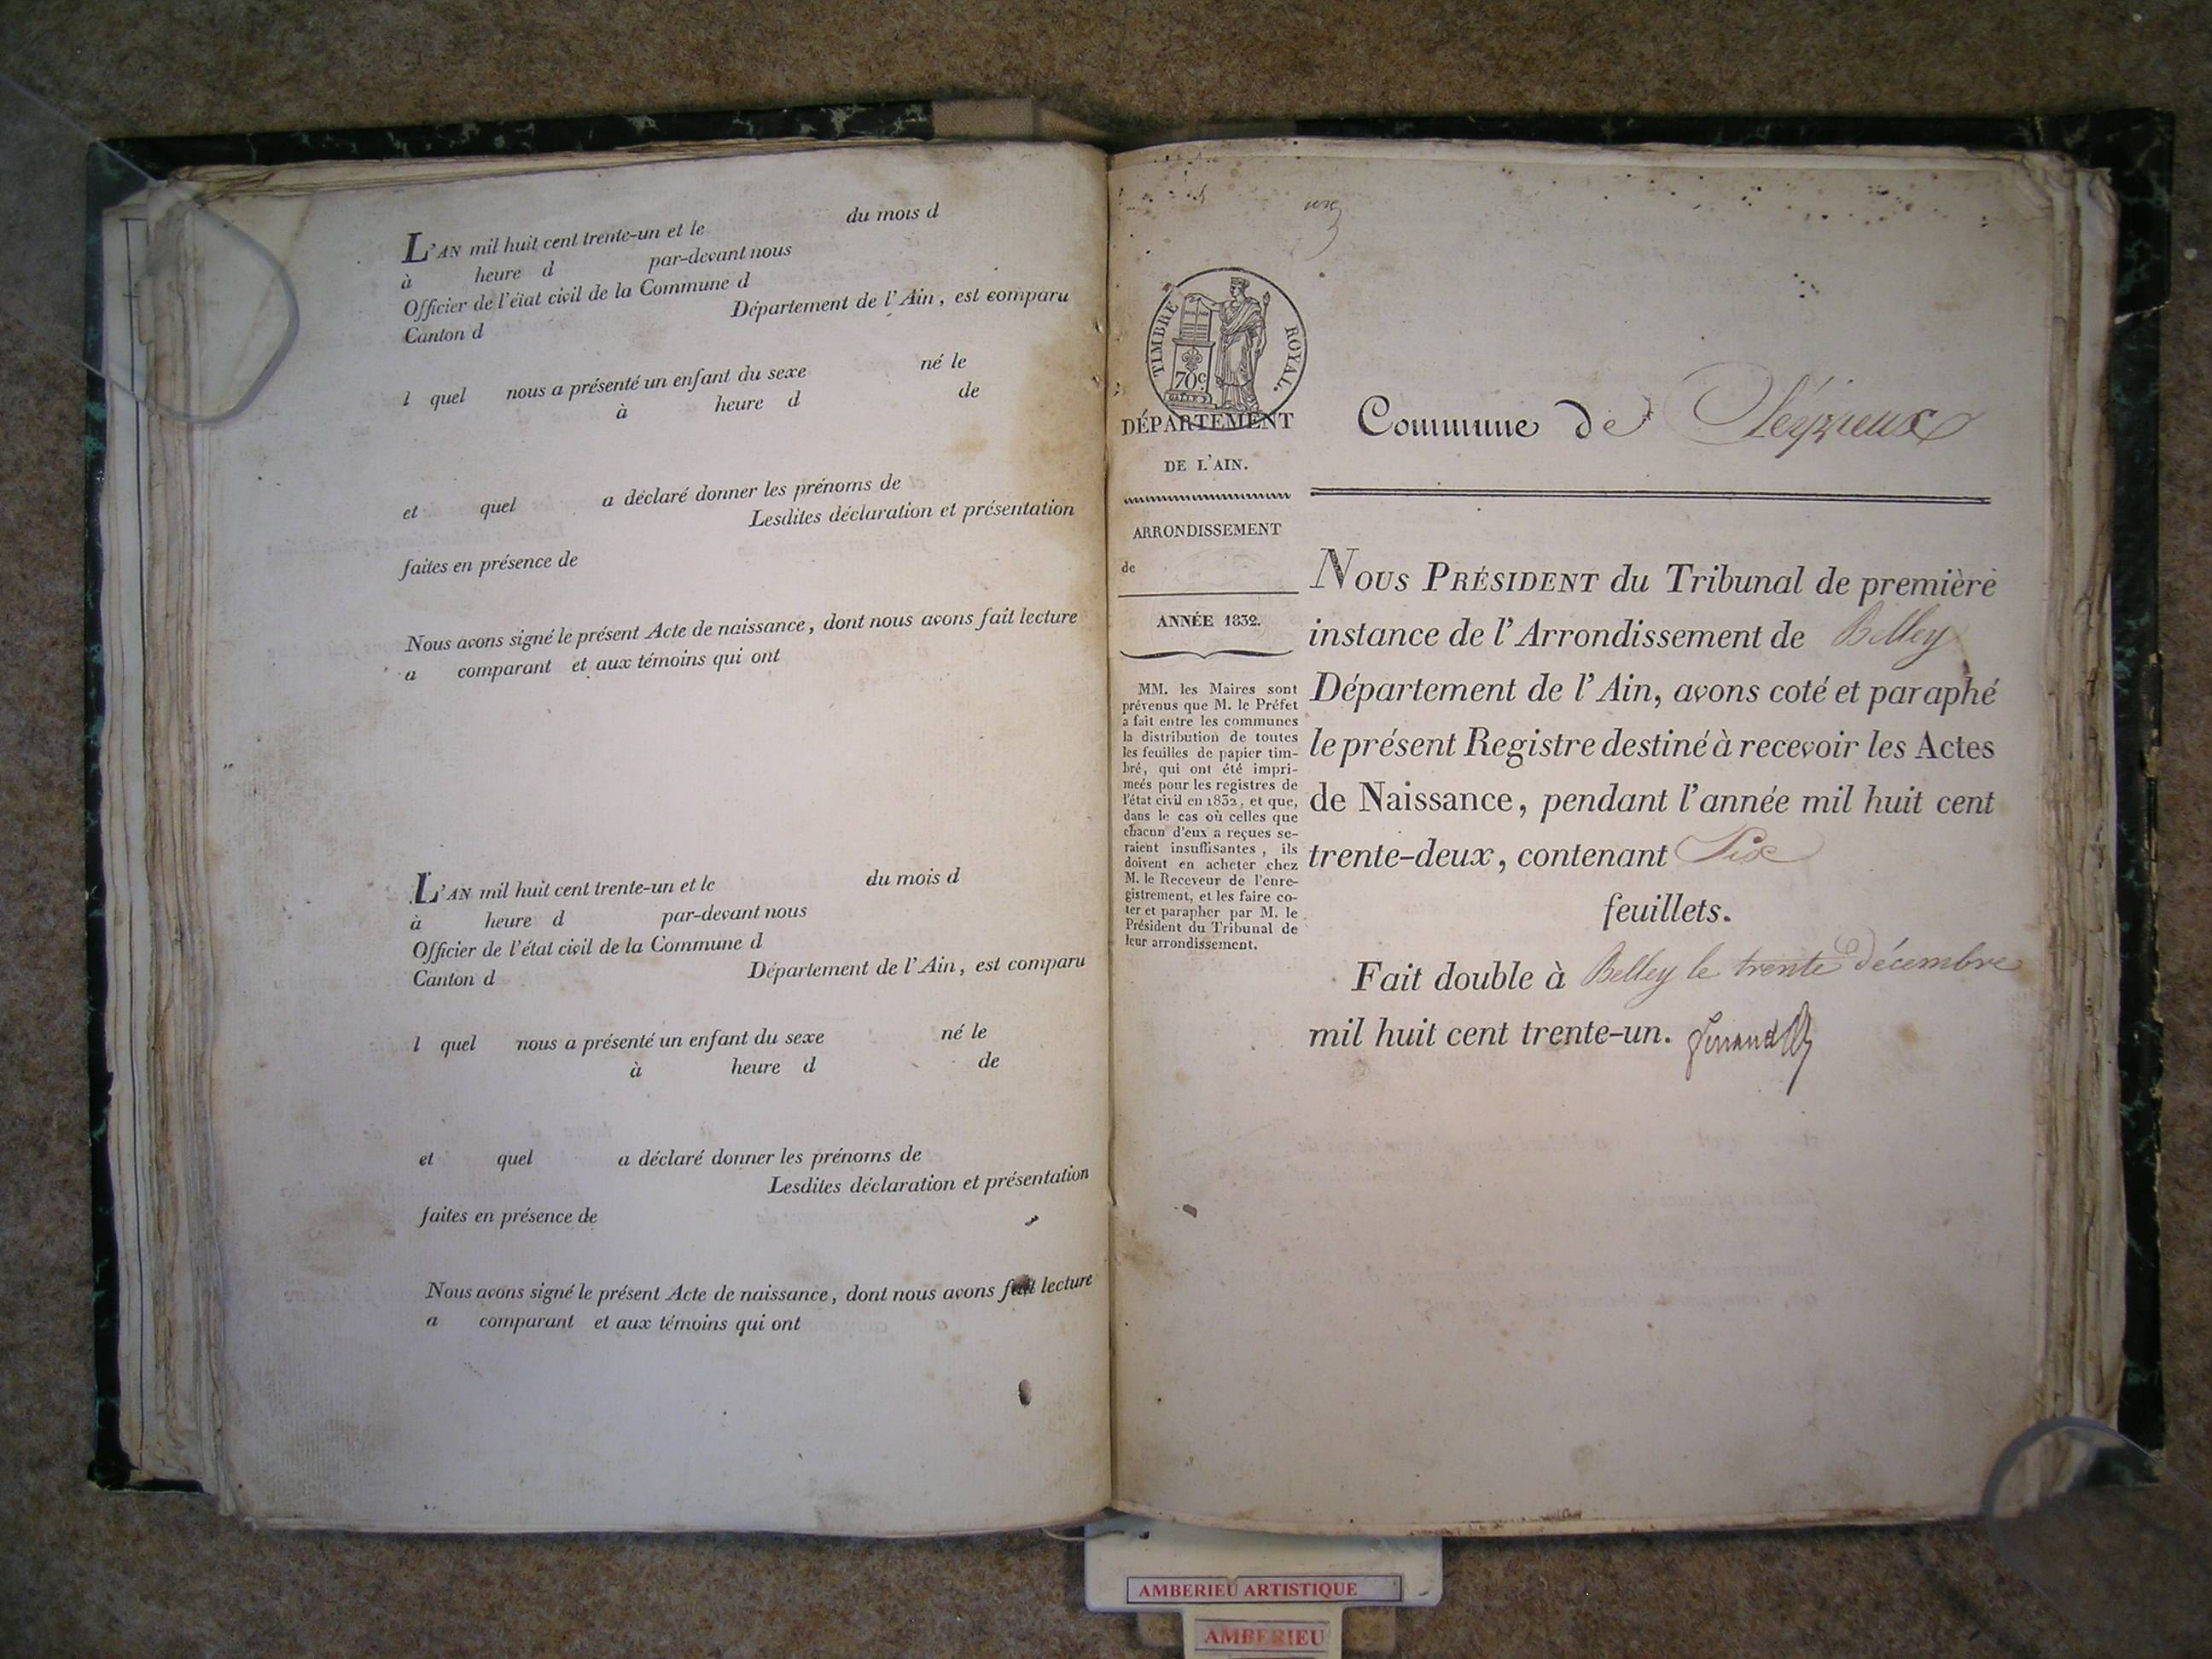 L'AN mil huit cent trente-un et le du mois d
à heure d par-devant nous
Officier de l'état civil de la Commune d
Canton d Département de l'Ain, est comparu
l quel nous a présenté un enfant du sexe né le
à heure d de
et quel a déclaré donner les prénoms de
Lesdites déclaration et présentation
faites en présence de
Nous avons signé le présent Acte de naissance, dont nous avons fait lecture
a comparant et aux témoins qui ont
L'AN mil huit cent trente-un et le du mois d
à heure d par-devant nous
Officier de l'état civil de la Commune d
Canton d Département de l'Ain, est comparu
l quel nous a présenté un enfant du sexe né le
à heure d de
et quel a déclaré donner les prénoms de
Lesdites déclaration et présentation
faites en présence de
Nous avons signé le présent Acte de naissance, dont nous avons fait lecture
a comparant et aux témoins qui ont
TIMBRE ROYAL.
70c
DÉPARTEMENT
DE L'AIN.
ARRONDISSEMENT
de
ANNÉE 1832.
MM. les Maires sont
prévenus que M. le Préfet
a fait entre les communes
la distribution de toutes
les feuilles de papier tim-
bré, qui ont été impri-
meés pour les registres de
l'état civil en 1832, et que,
dans le cas où celles que
chacun d'eux a reçues se-
raient insuffisantes, ils
doivent en acheter chez
M. le Receveur de l'enre-
gistrement, et les faire co-
ter et parapher par M. le
Président du Tribunal de
leur arrondissement.
Commune de Leyzieux
NOUS PRÉSIDENT du Tribunal de première
instance de l'Arrondissement de Belley
Département de l'Ain, avons coté et paraphé
le présent Registre destiné à recevoir les Actes
de Naissance, pendant l'année mil huit cent
trente-deux, contenant Six
feuillets.
Fait double à Belley le trente décembre
mil huit cent trente-un.
AMBERIEU ARTISTIQUE
AMBERIEU